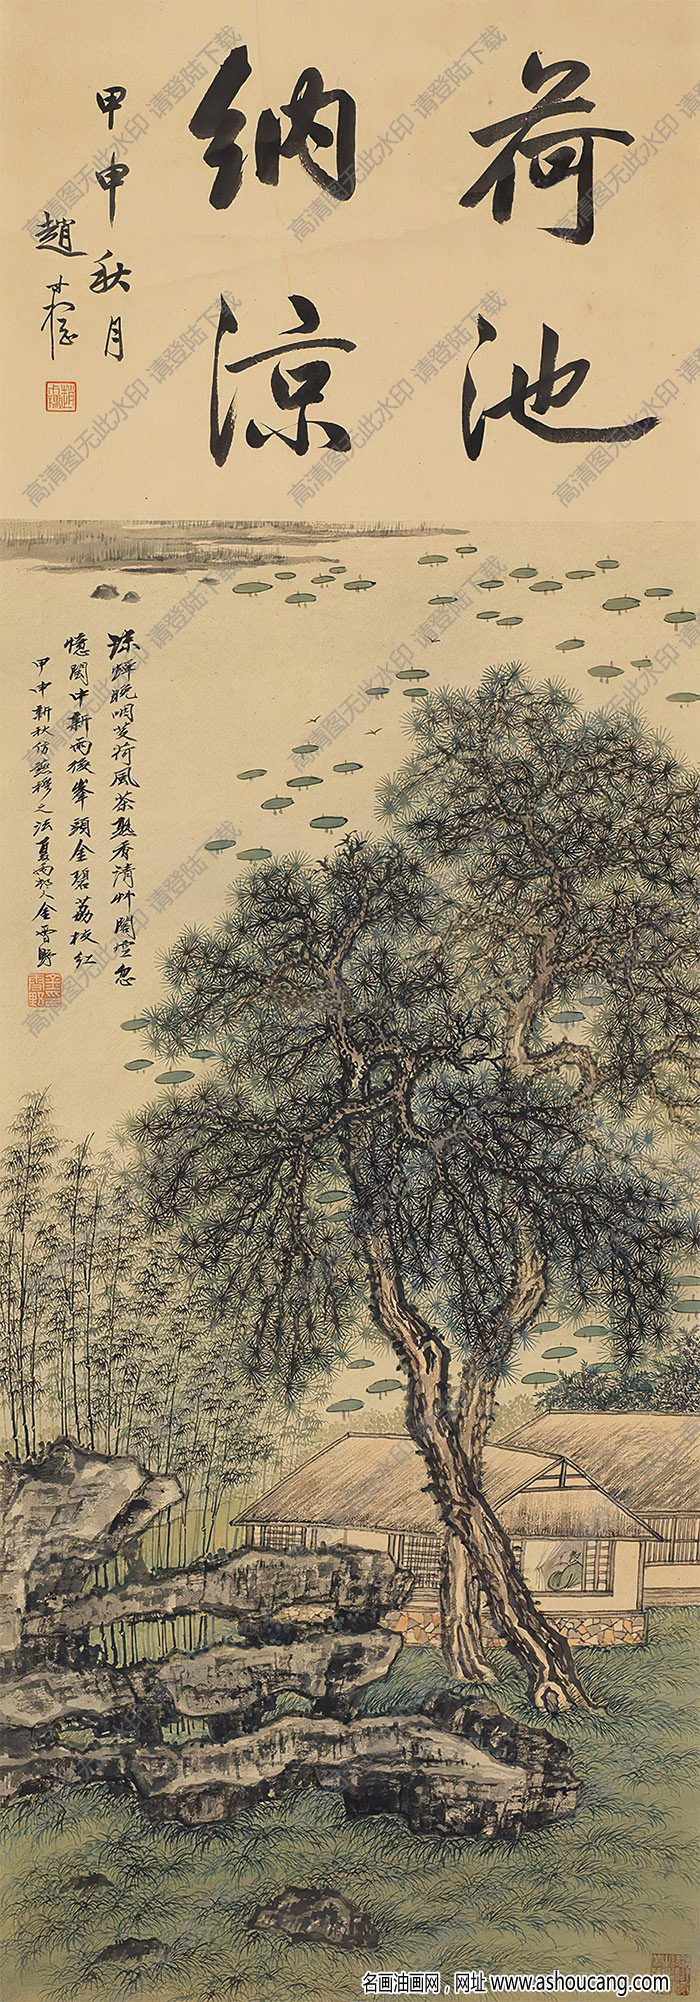 荷池
纳凉
甲申秋月
趙
涼蟬晚唱芰荷風茶熟香清竹閣空忽
憶閩中新雨後峯頭金碧荔枝紅
甲申新秋仿燕穆之法夏雨邨人金雪野
高清图无此水印 请登陆下载
名画油画网，网址 www.ashoucang.com